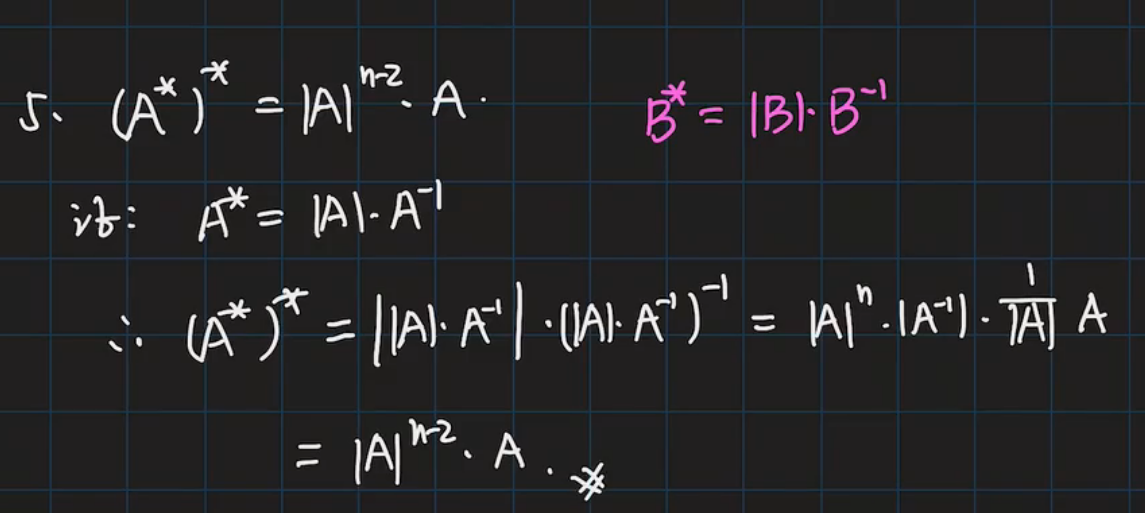 5. (A*)* = |A|ⁿ⁻² · A. B* = |B|· B⁻¹
证: A* = |A|· A⁻¹
∴ (A*)* = ||A|· A⁻¹| · (|A|· A⁻¹)⁻¹ = |A|ⁿ · |A⁻¹| · 1/|A| A
= |A|ⁿ⁻² · A . ※